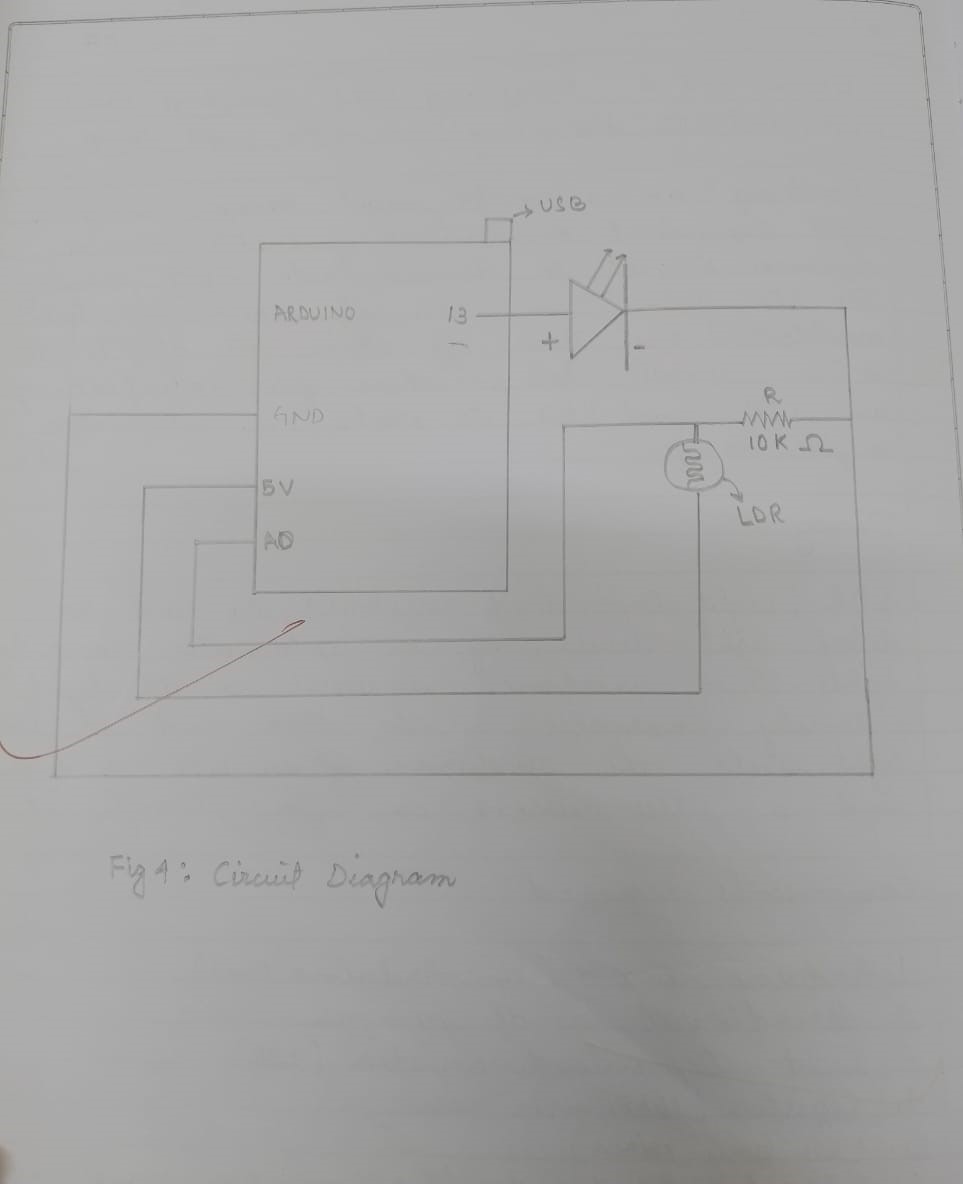 USB
ARDUINO 13
+ -
GND
R
10K Ω
5V
LDR
A0
Fig 4: Circuit Diagram